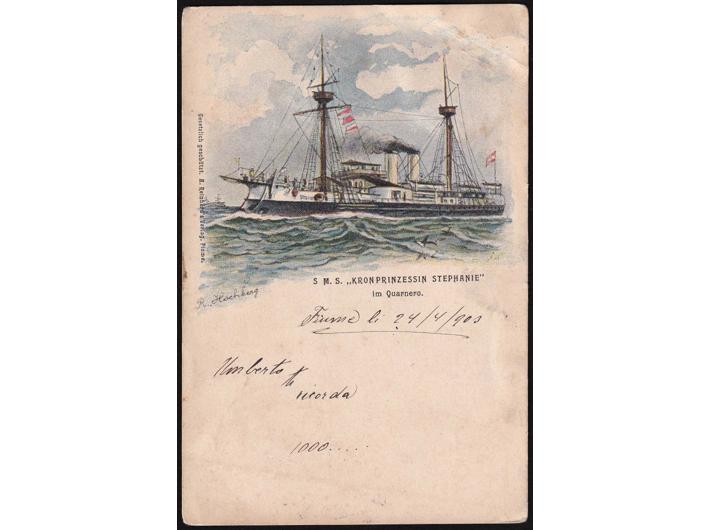 Gesetzlich geschützt.
S M. S. „KRONPRINZESSIN STEPHANIE"
im Quarnero.
R. Hochberg
Fiume li 24/4/903
Umberto
ti
ricorda
1000.....